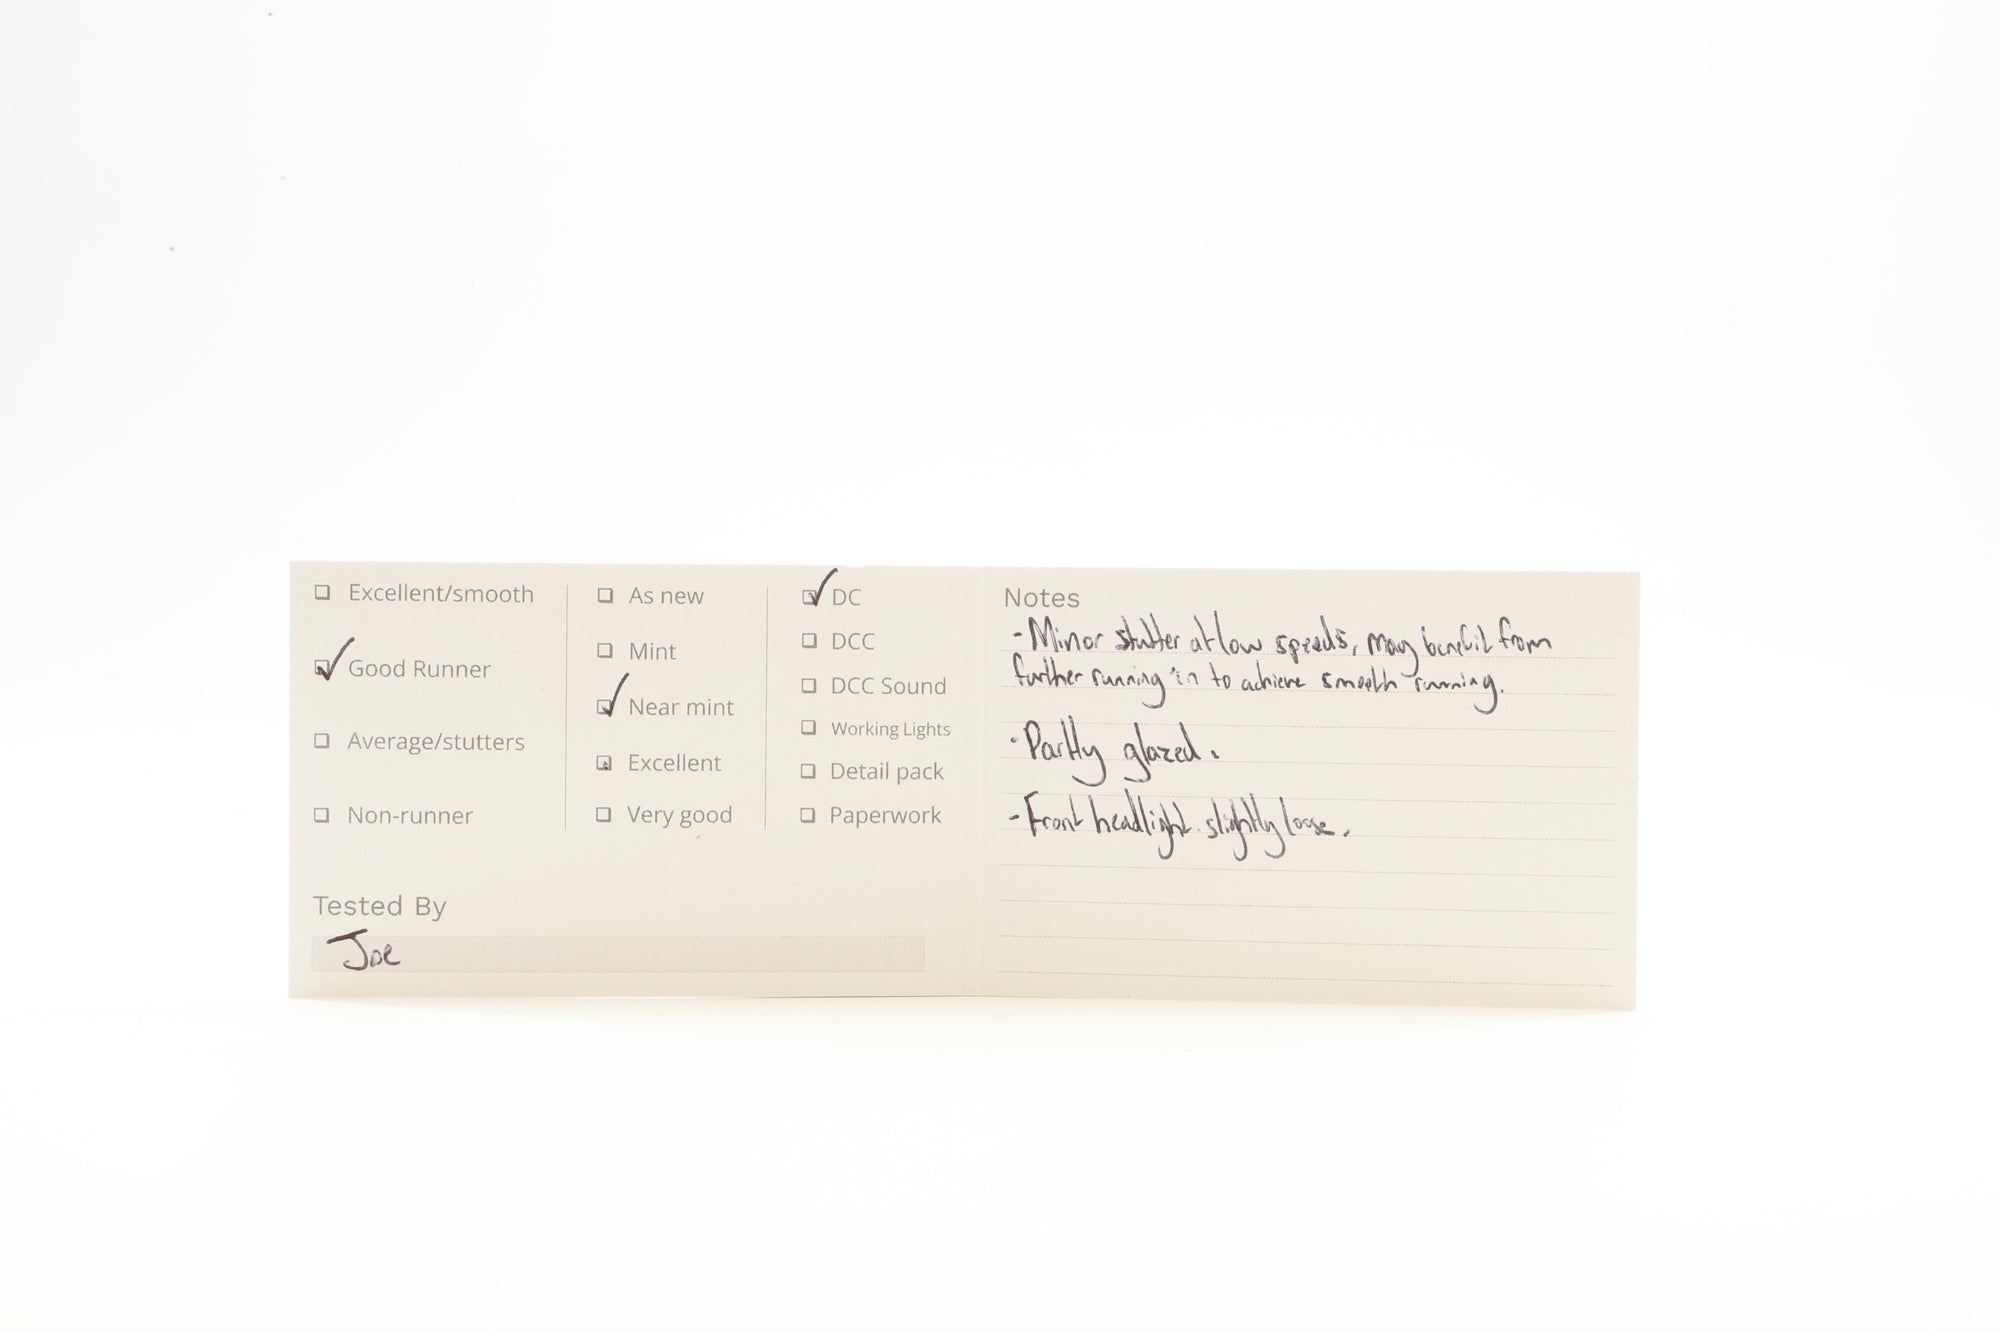 Excellent/smooth
Good Runner
Average/stutters
Non-runner
As new
Mint
Near mint
Excellent
Very good
DC
DCC
DCC Sound
Working Lights
Detail pack
Paperwork
Tested By
Joe
Notes
- Minor stutter at low speeds, may benefit from
further running in to achieve smooth running.
- Partly glazed.
- Front headlight slightly loose.